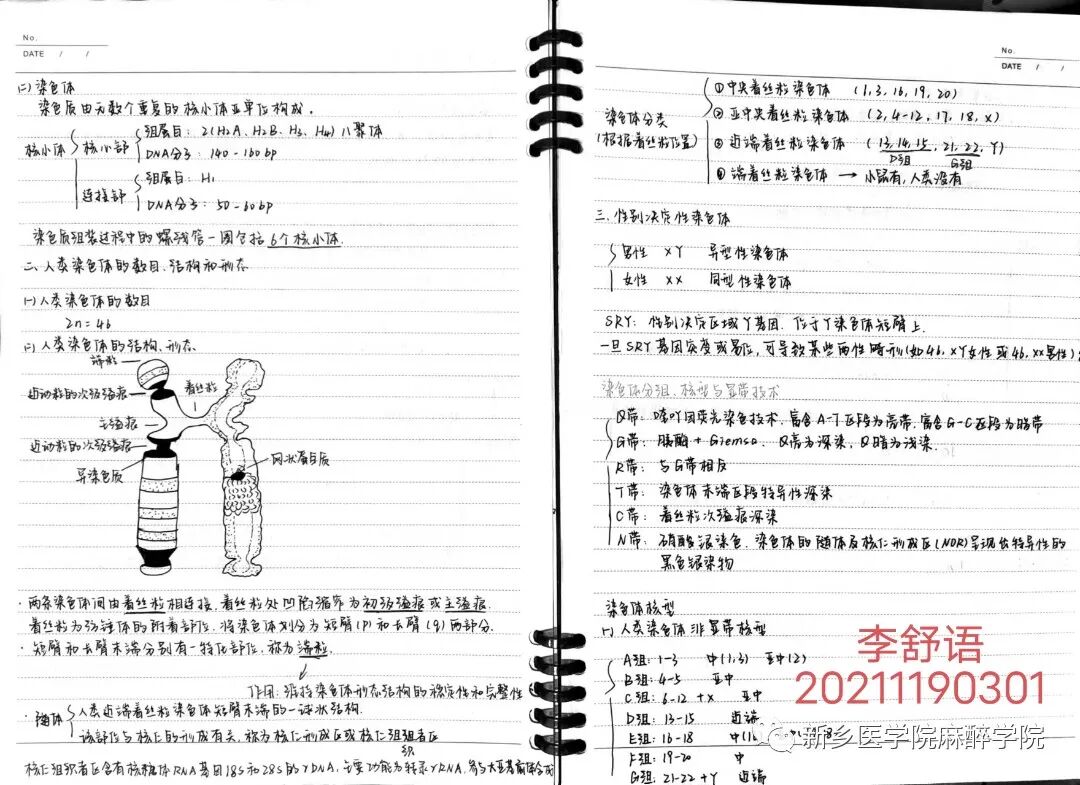 No.
DATE / /
(二)染色体
染色质由无数个重复的核小体亚单位构成.
核小体
核心部
组蛋白: 2(H2A、H2B、H3、H4)八聚体
DNA分子: 140-160bp
连接部
组蛋白: H1
DNA分子: 50-60bp
染色质组装过程中的螺线管一圈包括6个核小体.
二、人类染色体的数目、结构和形态
(一)人类染色体的数目
2n=46
(二)人类染色体的结构、形态
端粒
近动粒的次级缢痕
着丝粒
主缢痕
近动粒的次级缢痕
异染色质
网状蛋白质
·两条染色体间由着丝粒相连接,着丝粒处凹陷缩窄为初级缢痕或主缢痕.
着丝粒为纺锤体的附着部位,将染色体划分为短臂(P)和长臂(q)两部分.
·短臂和长臂末端分别有一特化部位,称为端粒
作用:维持染色体形态结构的稳定性和完整性
·随体
人类近端着丝粒染色体短臂末端的一球状结构.
该部位与核仁的形成有关,称为核仁形成区或核仁组织者区
核仁组织者区含有核糖体RNA基因18s和28s的rDNA,主要功能为转录rRNA,参与
No.
DATE / /
染色体分类
(根据着丝粒位置)
①中央着丝粒染色体 (1,3,16,19,20)
②亚中央着丝粒染色体 (2,4-12,17,18,X)
③近端着丝粒染色体 (13,14,15,21,22,Y)
D组 G组
④端着丝粒染色体 → 小鼠有,人类没有
三、性别决定性染色体
男性 XY 异型性染色体
女性 XX 同型性染色体
SRY: 性别决定区域Y基因.位于Y染色体短臂上.
一旦SRY基因突变或易位,可导致某些两性畸形(如46,XY女性或46,XX男性);
染色体分组、核型与显带技术
Q带: 喹吖因荧光染色技术.富含A-T区段为亮带,富含G-C区段为暗带
G带: 胰酶+Giemsa. Q亮为深染,Q暗为浅染.
R带: 与G带相反
T带: 染色体末端区段特异性深染
C带: 着丝粒次缢痕深染
N带: 硝酸银染色.染色体的随体及核仁形成区(NOR)呈现出特异性的
黑色银染物
染色体核型
(一)人类染色体非显带核型
A组: 1-3 中(1,3) 亚中(2)
B组: 4-5 亚中
C组: 6-12+X 亚中
D组: 13-15 近端
E组: 16-18 中(16
F组: 19-20 中
G组: 21-22+Y 近端
李舒语
20211190301
新乡医学院麻醉学院